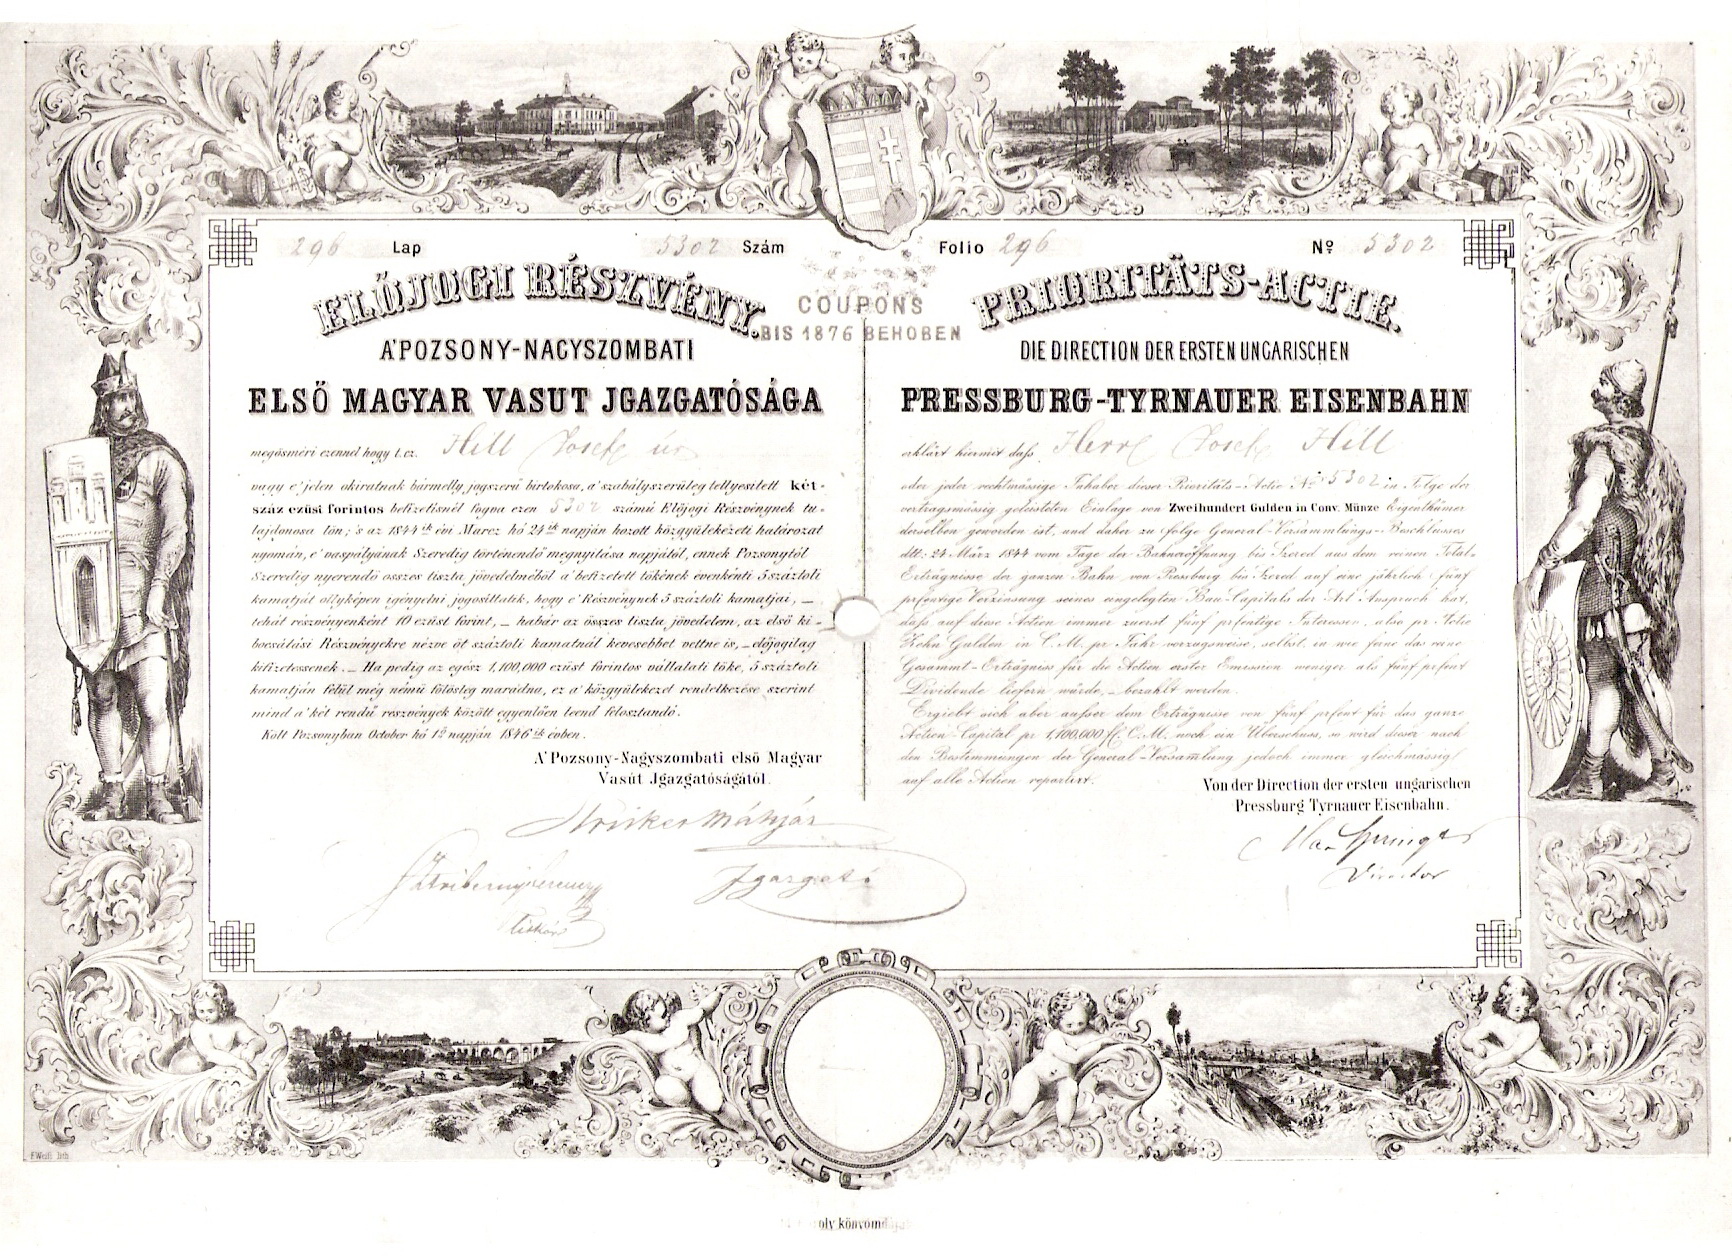 296 Lap 5302 Szám
ELŐJOGI RÉSZVÉNY.
A'POZSONY-NAGYSZOMBATI
ELSŐ MAGYAR VASUT JGAZGATÓSÁGA
megösméri ezennel hogy t.cz. Hill Josef úr
vagy e' jelen okiratnak bármelly jogszerű birtokosa, a' szabályszerűleg tellyesített két-
száz ezüst forintos befizetésnél fogva ezen 5302 számú Előjogi Részvénynek tu-
lajdonosa lön; s az 1844ik évi Marcz hó 24ik napján hozott közgyülekezeti határozat
nyomán, e' vaspályának Szeredig történendő megnyitása napjától, ennek Pozsonytól
Szeredig nyerendő összes tiszta jövedelméből a' befizetett tőkének évenkénti 5 száztoli
kamatját ollyképen igényelni jogosíttatik, hogy e' Részvénynek 5 száztoli kamatjai, —
tehát részvényenként 10 ezüst forint, — habár az összes tiszta jövedelem, az első ki-
bocsátási Részvényekre nézve öt száztoli kamatnál kevesebbet vettne is, — előjogilag
kifizetessenek. — Ha pedig az egész 1,100,000 ezüst forintos vállalati tőke, 5 száztoli
kamatján felül még némű fölösleg maradna, ez a' közgyülekezet rendelkezése szerint
mind a' két rendű részvények között egyenlően leend felosztandó.
Költ Pozsonyban October hó 1ő napján 1846ik évben.
A' Pozsony-Nagyszombati első Magyar
Vasút Jgazgatóságától.
Mátyás
Jgazgató
COUPONS
BIS 1876 BEHOBEN
Folio 296 No 5302
PRIORITÄTS-ACTIE.
DIE DIRECTION DER ERSTEN UNGARISCHEN
PRESSBURG-TYRNAUER EISENBAHN
erklärt hiermit daſs Herr Josef Hill
oder jeder rechtmässige Inhaber dieser Prioritäts-Actie No 5302 in Folge der
vertragsmässig geleisteten Einlage von Zweihundert Gulden in Conv. Münze Eigenthümer
derselben geworden ist, und daher zu folge General-Versammlungs-Beschlusses
dtt. 24 März 1844 vom Tage der Bahneröffnung bis Szered aus dem reinen Total-
Erträgnisse der ganzen Bahn von Pressburg bis Szered auf eine jährlich fünf
prſentige Verzinsung seines eingelegten Bau-Capitals der Art Anspruch hat,
daſs auf diese Actien immer zuerst fünf prſentige Interessen, also pr Actie
Zehn Gulden in C.M. pr Jahr vorzugsweise, selbst, in wie ferne das reine
Gesammt-Erträgniss für die Actien erster Emission weniger als fünf prſent
Dividende liefern würde, — bezahlt werden.
Ergiebt sich aber auſser dem Erträgnisse von fünf prſent für das ganze
Actien-Capital pr 1,100,000 fl. C.M. noch ein Überschuss, so wird dieser nach
den Bestimmungen der General-Versamlung jedoch immer gleichmässig
auf alle Actien repartirt.
Von der Direction der ersten ungarischen
Pressburg Tyrnauer Eisenbahn.
Springer
Director
F. Weiß lith.